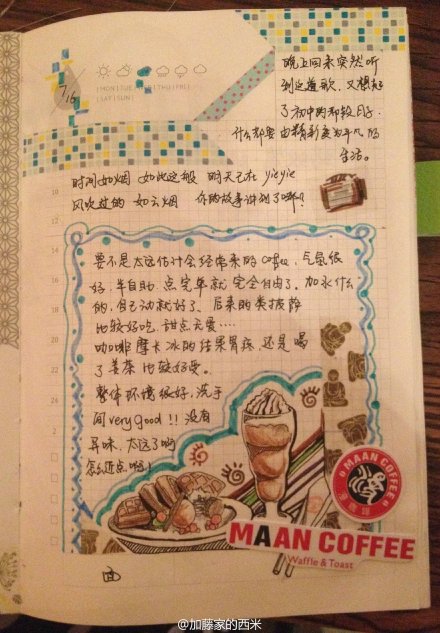 7/16
MON TUE WED THU FRI
SAT SUN
晚上回来突然听
到这首歌，又想起
了初中的那段日子
什么都要由精彩变为平凡的
生活。
时间如烟 如此这般 明天已在 yieyie
风吹过的 如云烟 你的故事讲到了哪？
10
12
14
16
18
20
22
24
要不是太远估计会经常来的coffee，气氛很
好，半自助 点完单就完全自由了，加水什么
的，自己动就好了、后来的类披萨
比较好吃，甜点无爱…
咖啡摩卡冰的结果胃疼，还是喝
了姜茶 比较好受。
整体环境很好，洗手
间very good!! 没有
异味，太远了啊
怎么近点啊！
MAAN COFFEE
漫咖啡
MAAN COFFEE
Waffle & Toast
@加藤家的西米